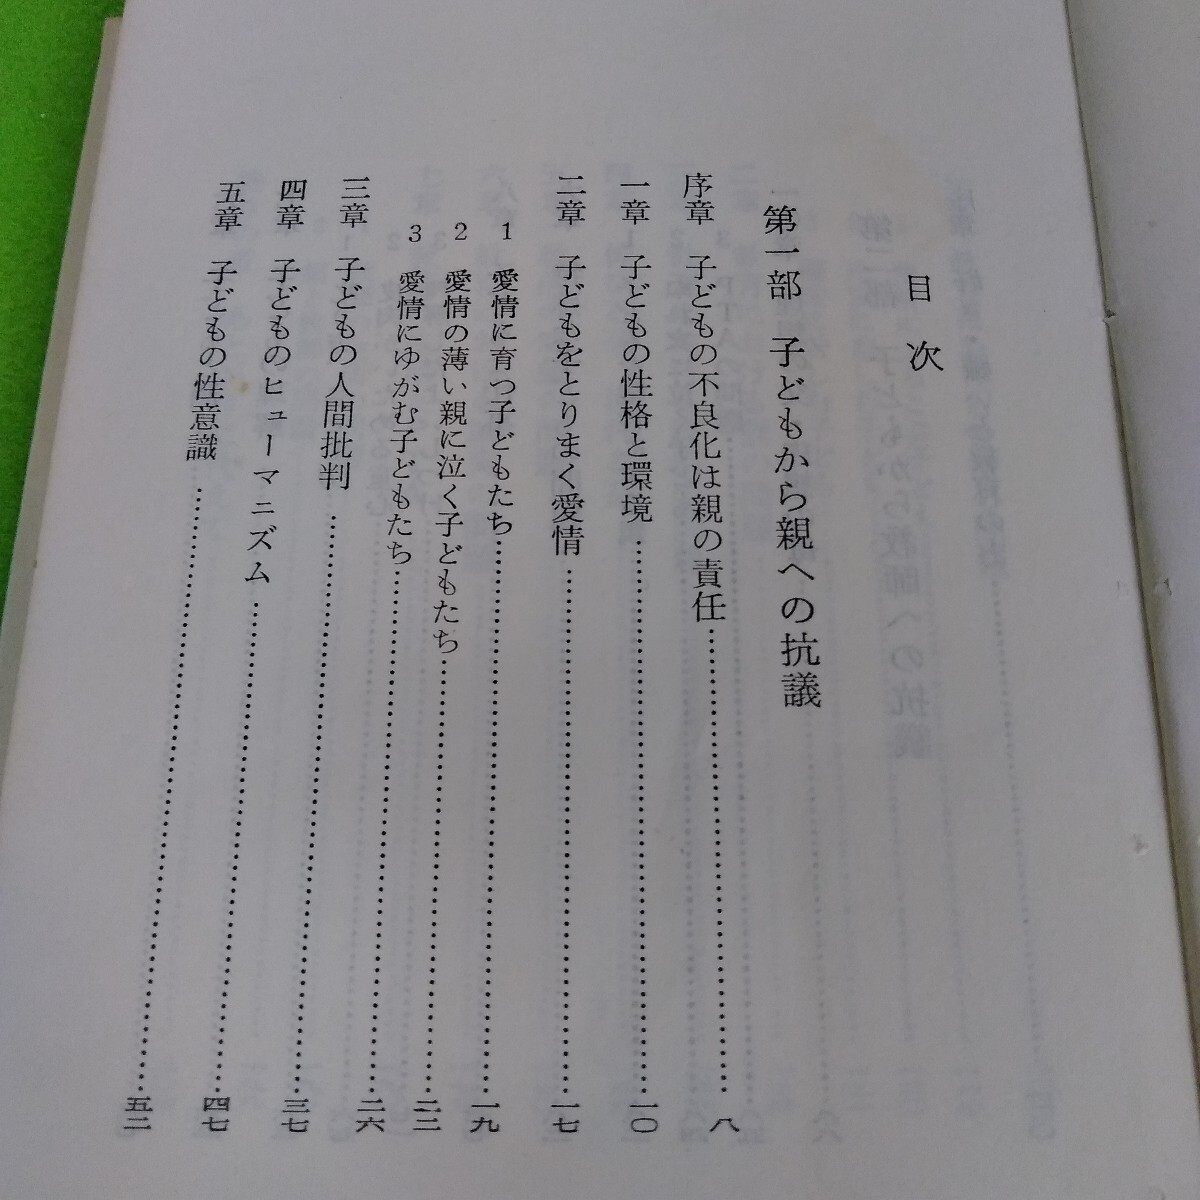 目次
第一部 子どもから親への抗議
序章 子どもの不良化は親の責任……八
一章 子どもの性格と環境……一〇
二章 子どもをとりまく愛情……一七
1 愛情に育つ子どもたち……一九
2 愛情の薄い親に泣く子どもたち……二二
3 愛情にゆがむ子どもたち……二六
三章 子どもの人間批判……三七
四章 子どものヒューマニズム……四七
五章 子どもの性意識……五二